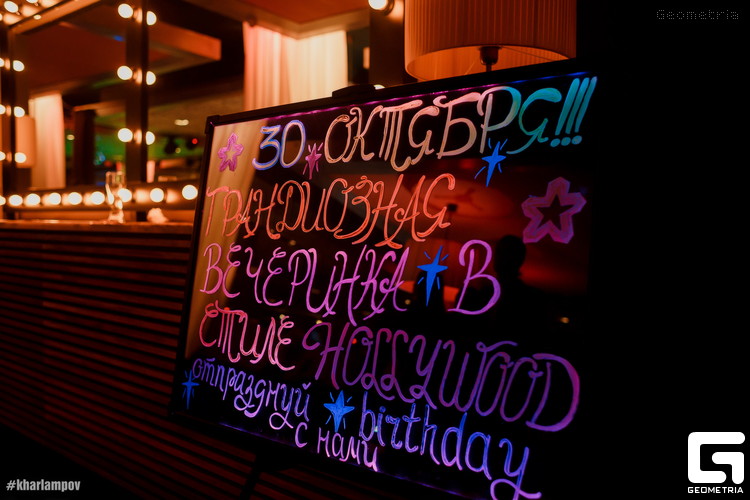 Geometria
30 ОКТЯБРЯ!!!
ГРАНДИОЗНАЯ
ВЕЧЕРИНКА В
СТИЛЕ HOLLYWOOD
отпразднуй birthday
с нами
#kharlampov
GEOMETRIA